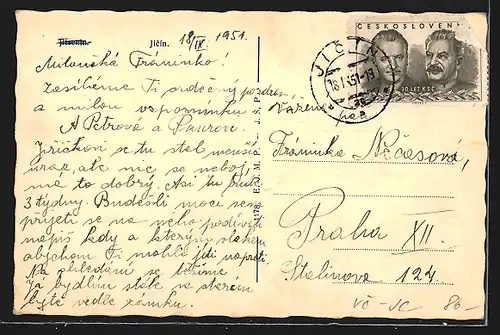 Jičín.
18/IX. 1951.
Milovaná Fráninko!
Zasíláme Ti srdečný pozdrav
a milou vzpomínku
A Petrová a
Jiříčkovi se tu stal menší
úraz, ale nic se neboj,
má to dobrý. Asi tu bude
3 týdny. Budeš-li moci sem
přijeti se na něho podívati
napiš kdy a kterým vlakem
abychom Ti mohli jíti naproti.
Na shledání se těšíme.
Já bydlím stále na starém
bytě vedle zámku.
ČESKOSLOVENSKO
30 LET KSČ
JIČÍN
Vážená
paní
Fráninka Nečasová,
Praha XII.
Stalinova 122.
VČ-JC 80-